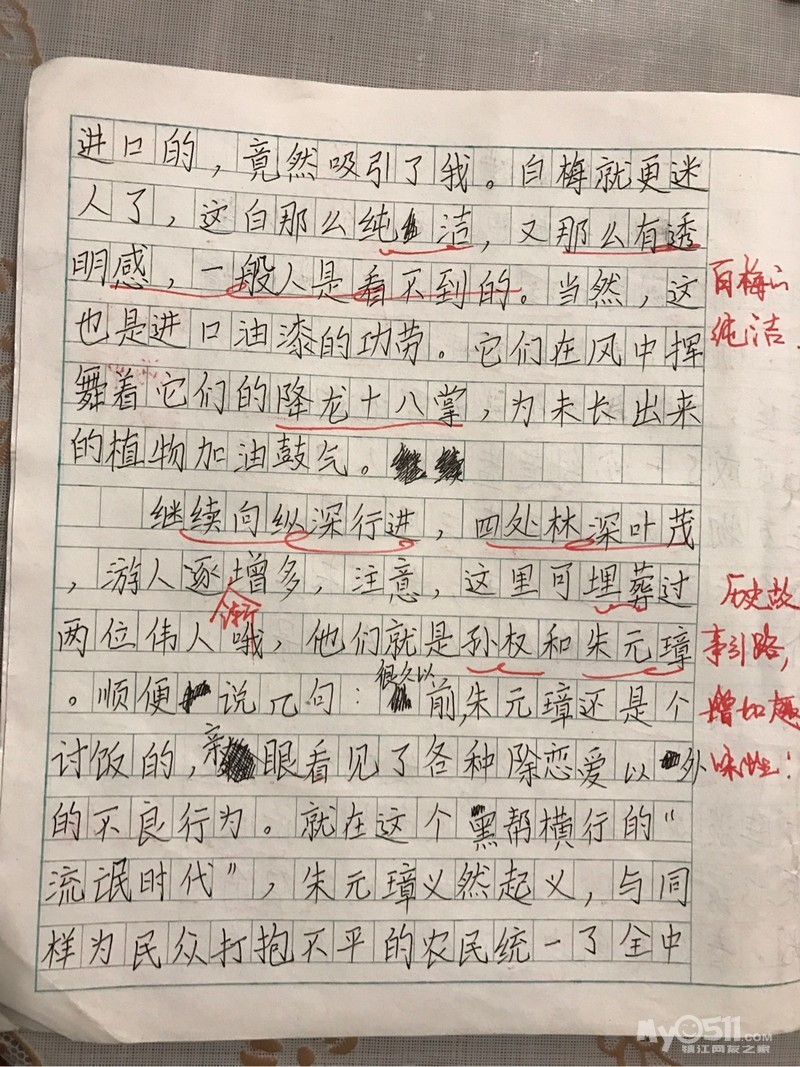 进口的，竟然吸引了我。白梅就更迷
人了，这白那么纯洁，又那么有透
明感，一般人是看不到的。当然，这
也是进口油漆的功劳。它们在风中挥
舞着它们的降龙十八掌，为未长出来
的植物加油鼓气。
继续向纵深行进，四处林深叶茂
，游人逐渐增多，注意，这里可埋葬过
两位伟人哦，他们就是孙权和朱元璋
。顺便说几句：很久以前，朱元璋还是个
讨饭的，亲眼看见了各种除恋爱以外
的不良行为。就在这个黑帮横行的“
流氓时代”，朱元璋义然起义，与同
样为民众打抱不平的农民统一了全中
白梅的
纯洁.
历史故
事引路，
增加趣
味性！
My0511.com
镇江网友之家